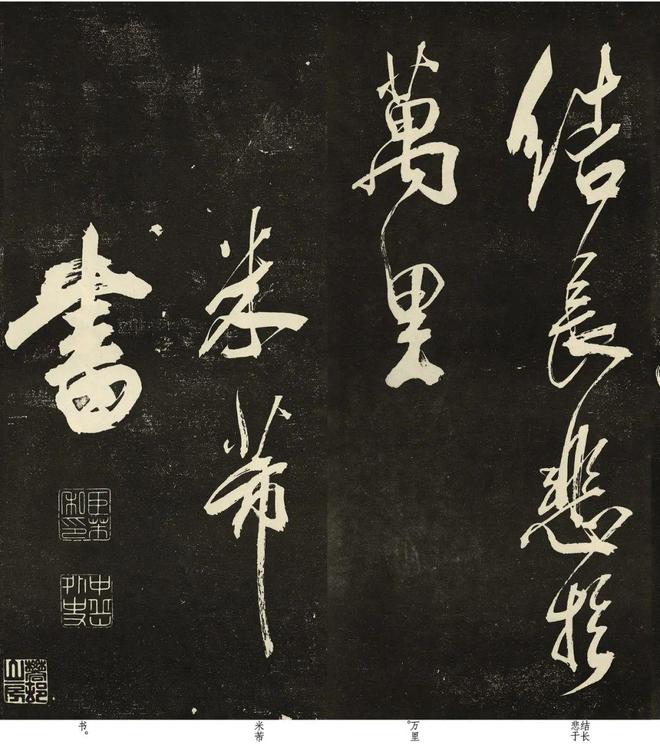 結長悲於
萬里
米芾
書
中岳外史
结长
悲于
万里。
米芾
书。